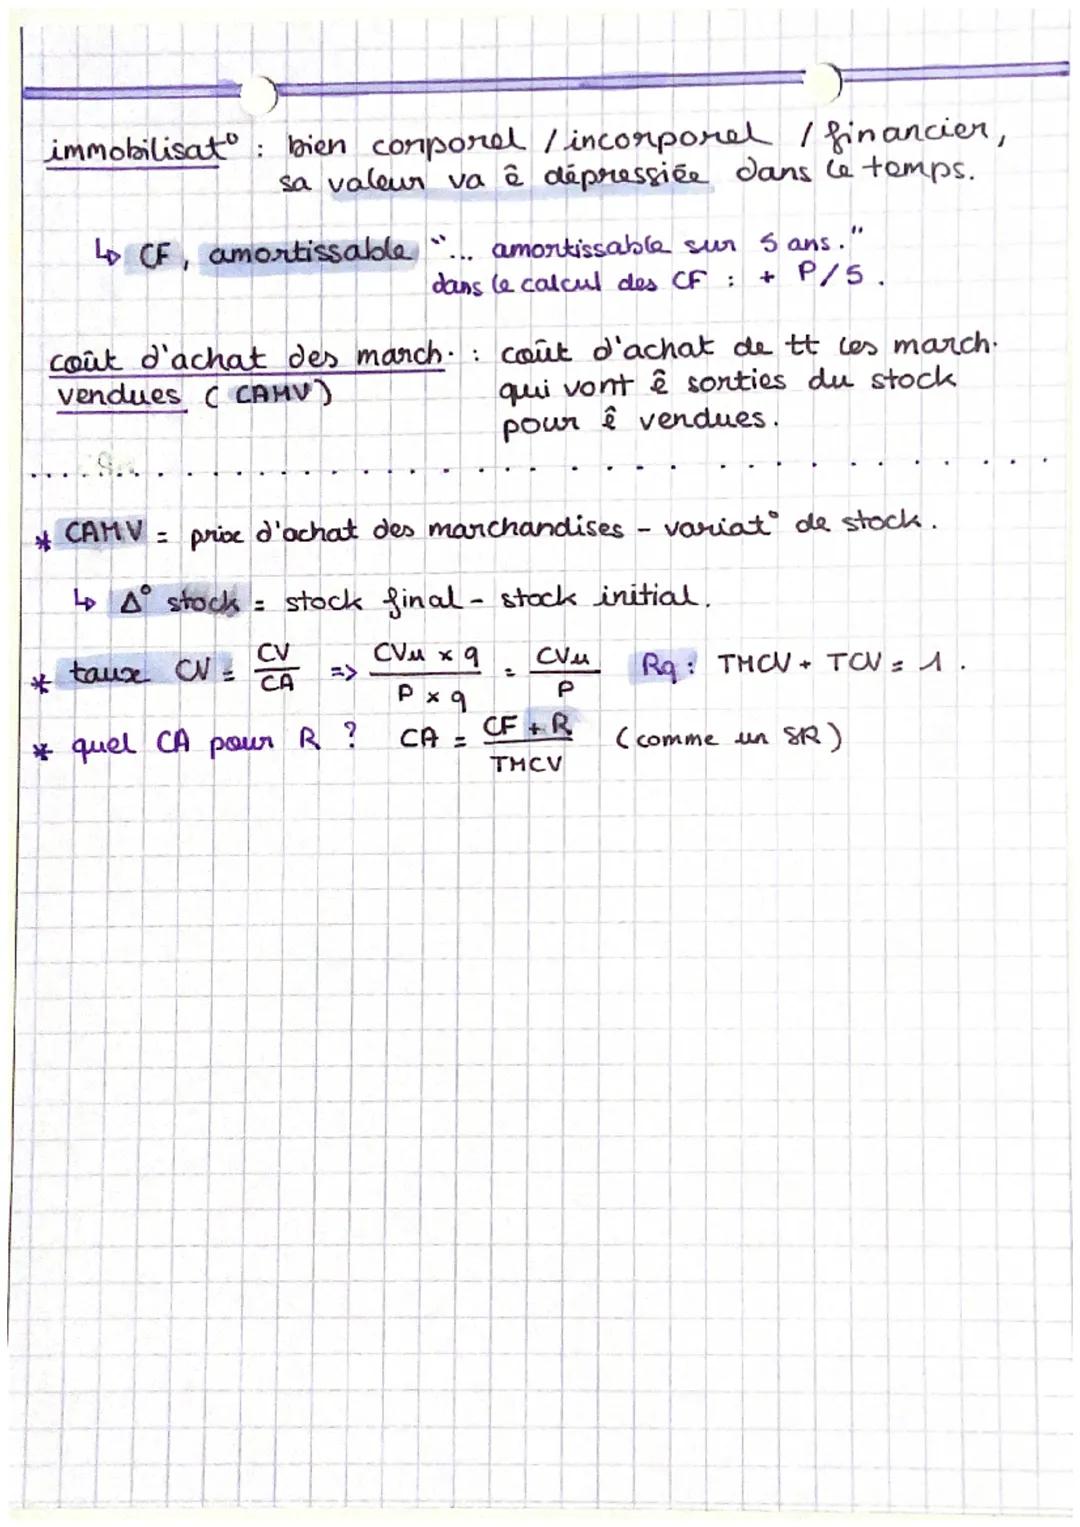 immobilisat° : bien corporel / incorporel / financier,
sa valeur va ê dépressiée dans le temps.
↳ CF, amortissable "... amortissable sur 5 ans."
dans le calcul des CF : + P/5.
coût d'achat des march. : coût d'achat de tt les march.
vendues (CAMV) qui vont ê sorties du stock
pour ê vendues.
* CAMV = prix d'achat des marchandises - variat° de stock.
↳ Δ° stock = stock final - stock initial.
* taux CV = CV/CA => CVu x q / P x q = CVu/P Rq : TMCV + TCV = 1.
* quel CA pour R ? CA = CF + R / TMCV (comme un SR)